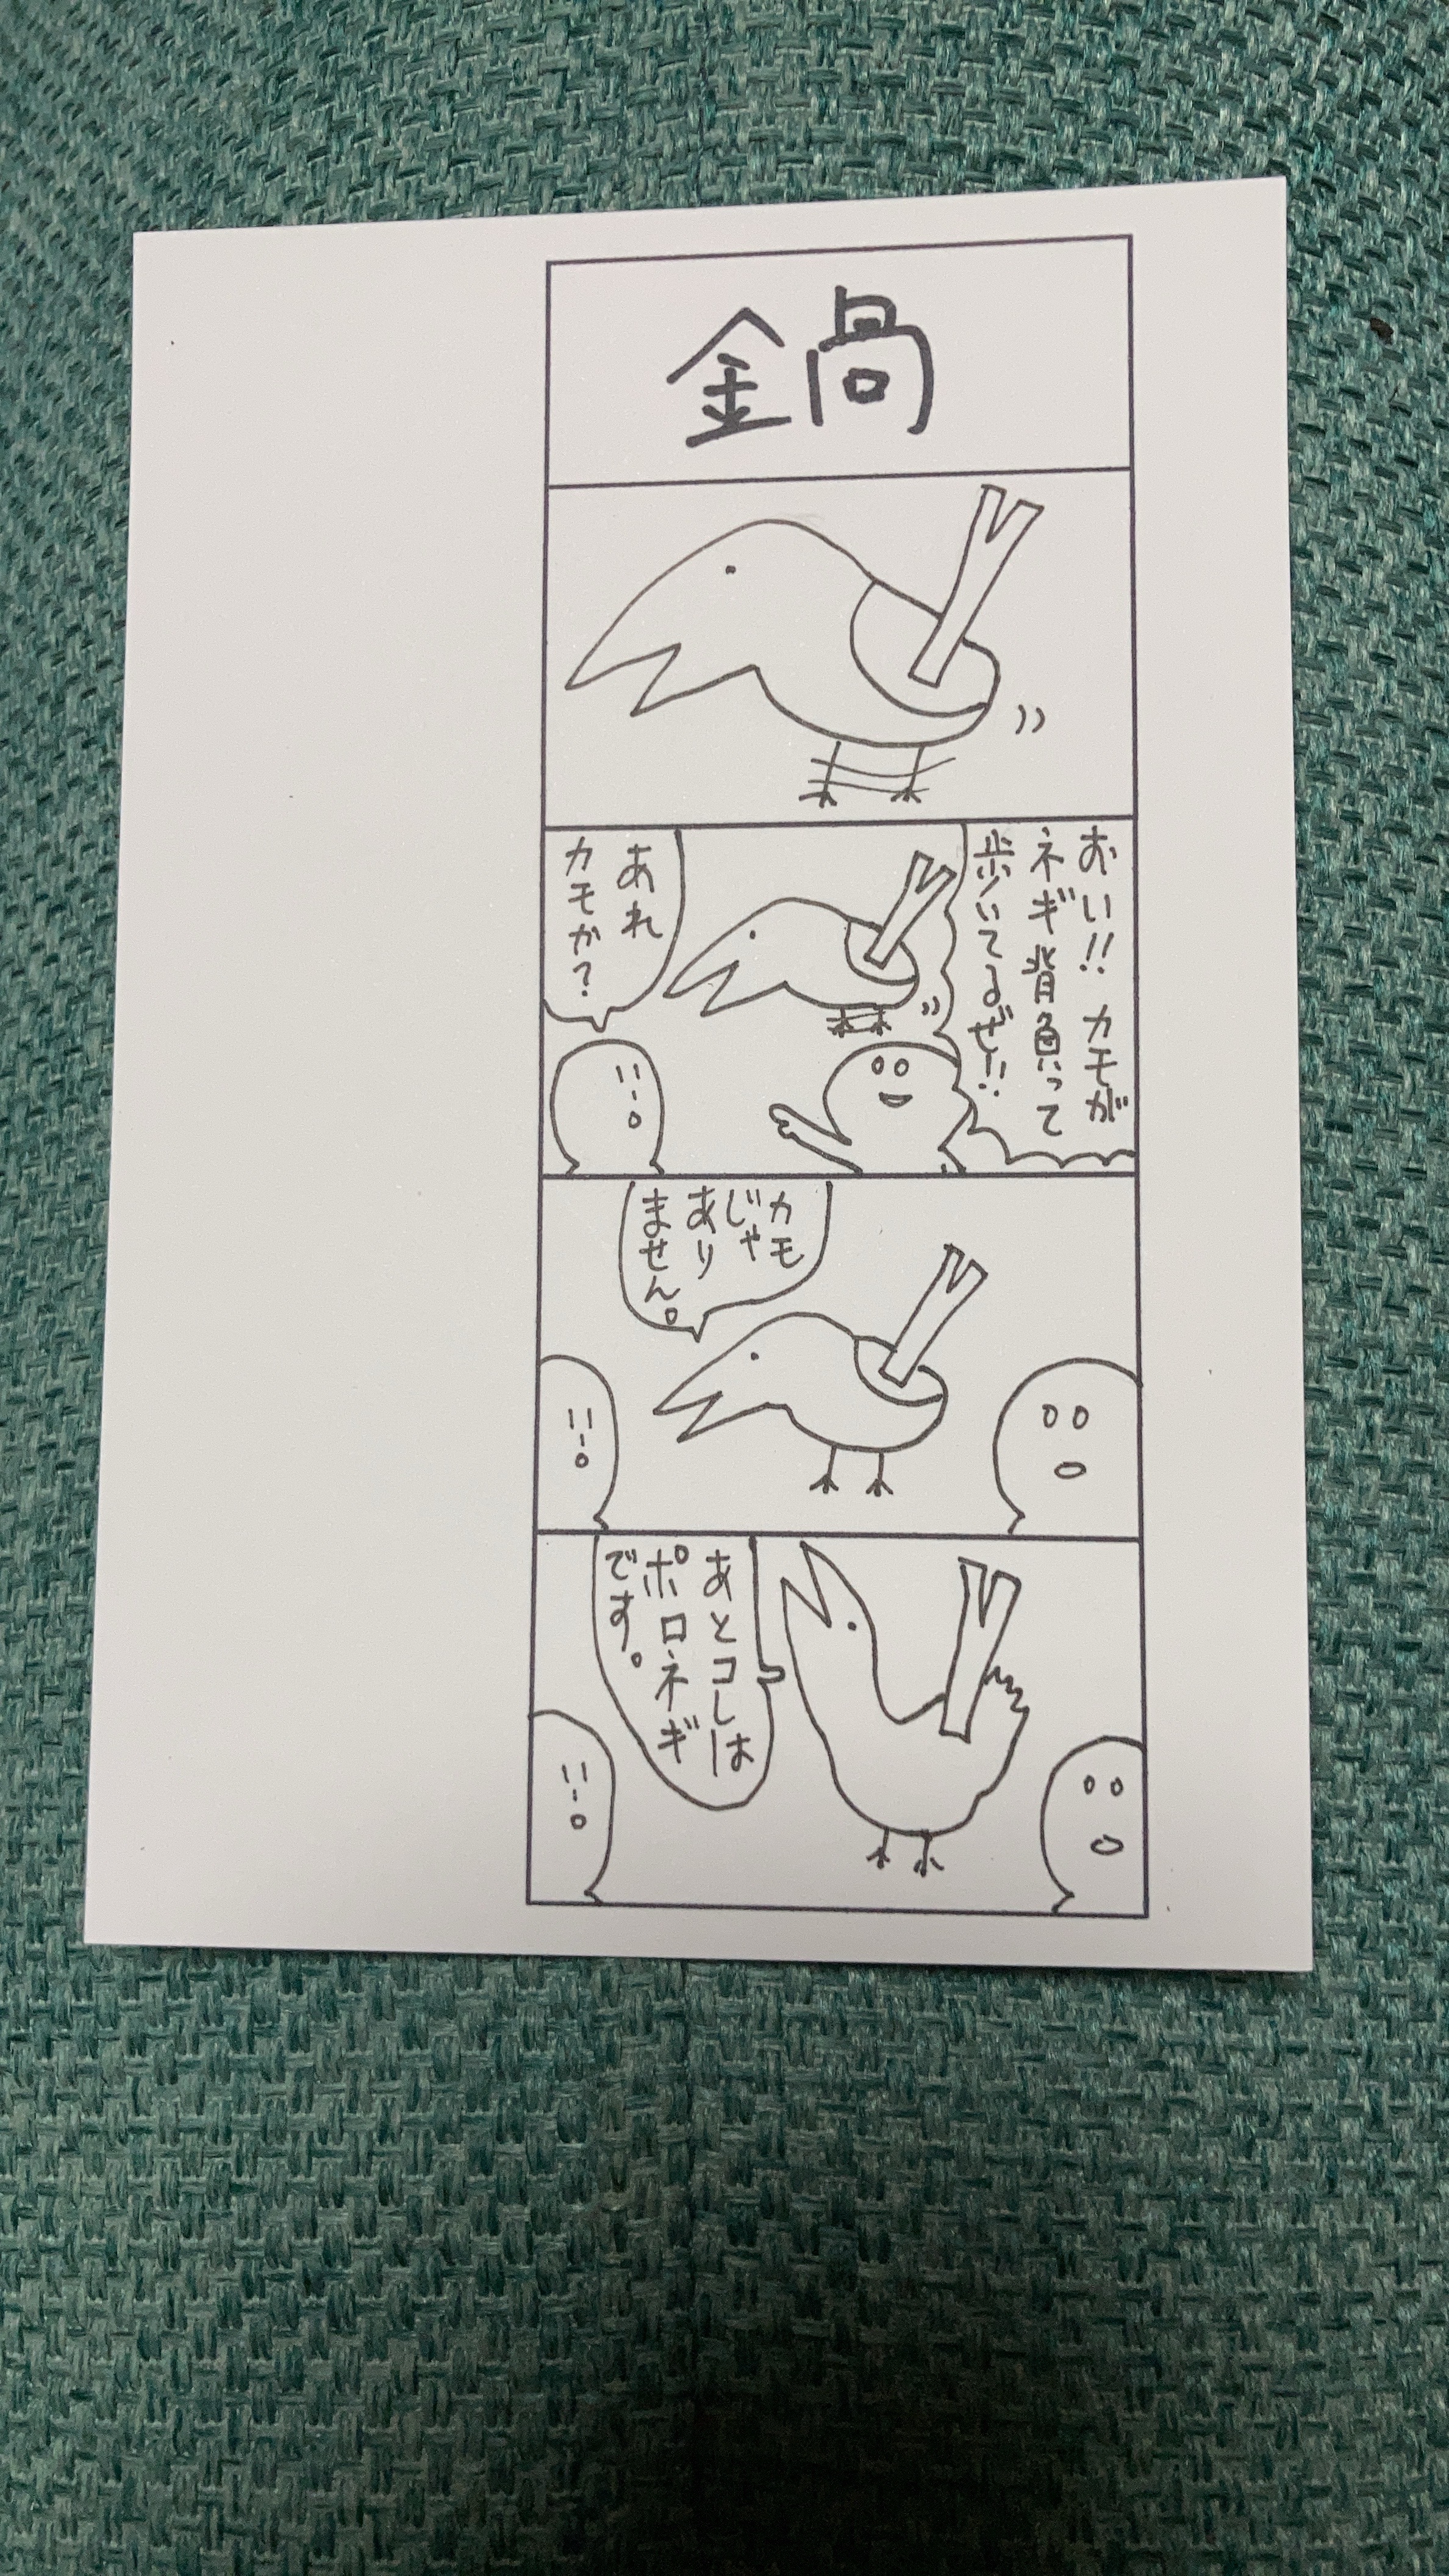 鍋
おい!! カモが
ネギ背負って
歩いてるぜ!!
あれ
カモか?
カモ
じゃ
あり
ません。
あとコレは
ポロネギ
です。